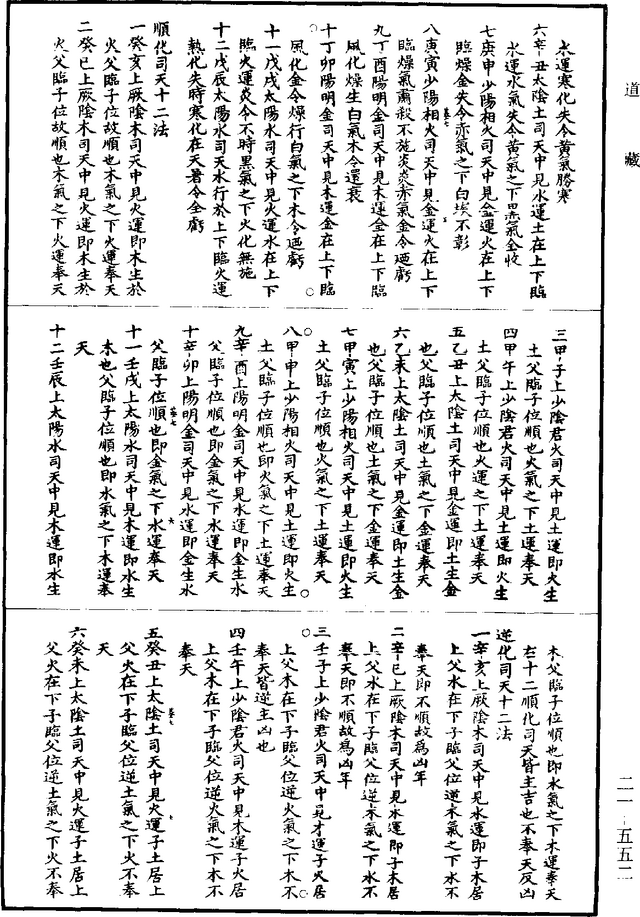 道藏
水運寒化失令黃氣勝寒
六辛丑太陰土司天中見水運土在上下臨
水運水氣失令黃氣之下黑氣金收
七庚申少陽相火司天中見金運火在上下
臨燥金失令赤氣之下白埃不彰
八庚寅少陽相火司天中見金運火在上下
臨燥氣肅殺不施炎炎赤氣金令迺虧
九丁酉陽明金司天中見木運金在上下臨
風化燥生白氣木令還衰
十丁卯陽明金司天中見木運金在上下臨
風化金令燥行白氣之下木令迺虧
十一戊戌太陽水司天中見火運水在上下
臨火運炎令不時黑氣之下火化無施
十二戊辰太陽水司天水行於上下臨火運
熱化失時寒化在天暑令全虧
順化司天十二法
一癸亥上厥陰木司天中見火運即木生於
火父臨子位故順也木氣之下火運奉天
二癸巳上厥陰木司天中見火運即木生於
火父臨子位故順也木氣之下火運奉天
三甲子上少陰君火司天中見土運即火生
土父臨子位順也火氣之下土運奉天
四甲午上少陰君火司天中見土運即火生
土父臨子位順也火運之下土運奉天
五乙丑上太陰土司天中見金運即土生金
也父臨子位順也土氣之下金運奉天
六乙未上太陰土司天中見金運即土生金
也父臨子位順也土氣之下金運奉天
七甲寅上少陽相火司天中見土運即火生
土父臨子位順也火氣之下土運奉天
八甲申上少陽相火司天中見土運即火生
土父臨子位順也即火氣之下土運奉天
九辛酉上陽明金司天中見水運即金生水
父臨子位順也即金氣之下水運奉天
十辛卯上陽明金司天中見水運即金生水
父臨子位順也即金氣之下水運奉天
十一壬戌上太陽水司天中見木運即水生
木也父臨子位順也即水氣之下木運奉
天
十二壬辰上太陽水司天中見木運即水生
木父臨子位順也即水氣之下木運奉天
右十二順化司天皆主吉也不奉天反凶
逆化司天十二法
一辛亥上厥陰木司天中見水運即子木居
上父水在下子臨父位逆木氣之下水不
奉天即不順故為凶年
二辛巳上厥陰木司天中見水運即子木居
上父水在下子臨父位逆木氣之下水不
奉天即不順故為凶年
三壬子上少陰君火司天中見木運子火居
上父木在下子臨父位逆火氣之下木不
奉天皆逆主凶也
四壬午上少陰君火司天中見木運子火居
上父木在下子臨父位逆火氣之下木不
奉天
五癸丑上太陰土司天中見火運子土居上
父火在下子臨父位逆土氣之下火不奉
天
六癸未上太陰土司天中見火運子土居上
父火在下子臨父位逆土氣之下火不奉
二一·五五二